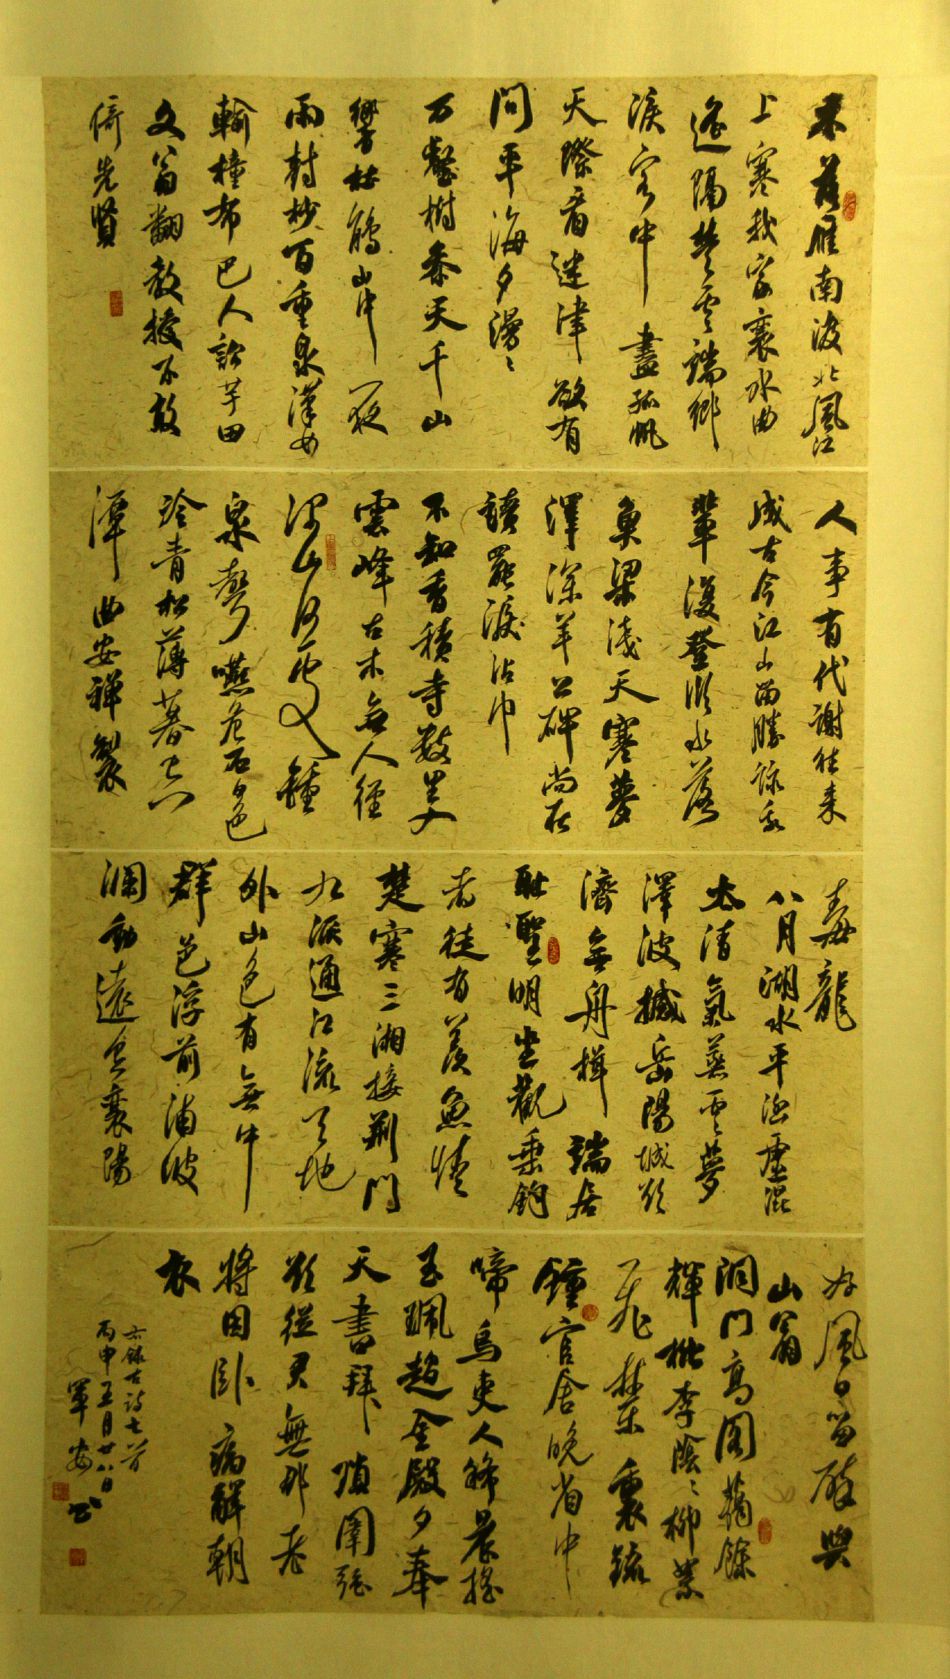 木落雁南渡北風江
上寒我家襄水曲
遙隔楚雲端鄉
淚客中盡孤帆
天際看迷津欲有
問平海夕漫〻
万壑樹參天千山
響杜鵑山中一夜
雨樹杪百重泉漢女
輸橦布巴人訟芋田
文翁翻教授不敢
倚先賢
人事有代謝往來
成古今江山留勝跡我
輩復登臨水落
魚梁淺天寒夢
澤深羊公碑尚在
讀罷淚沾巾
不知香積寺數里入
雲峰古木無人徑
深山何處鐘
泉聲咽危石日色
冷青松薄暮空
潭曲安禪製
毒龍
八月湖水平涵虛混
太清氣蒸雲夢
澤波撼岳陽城欲
濟無舟楫端居
恥聖明坐觀垂釣
者徒有羨魚情
楚塞三湘接荊門
九派通江流天地
外山色有無中
群邑浮前浦波
瀾動遠空襄陽
好風日留醉與
山翁
洞門高閣靄餘
輝桃李陰〻柳絮
飛禁裏疏
鐘官舍晚省中
啼鳥吏人稀晨搖
玉珮趨金殿夕奉
天書拜瑣闈強
欲從君無那老
將因臥病解朝
衣
右錄古詩七首
丙申五月廿八日
軍安书